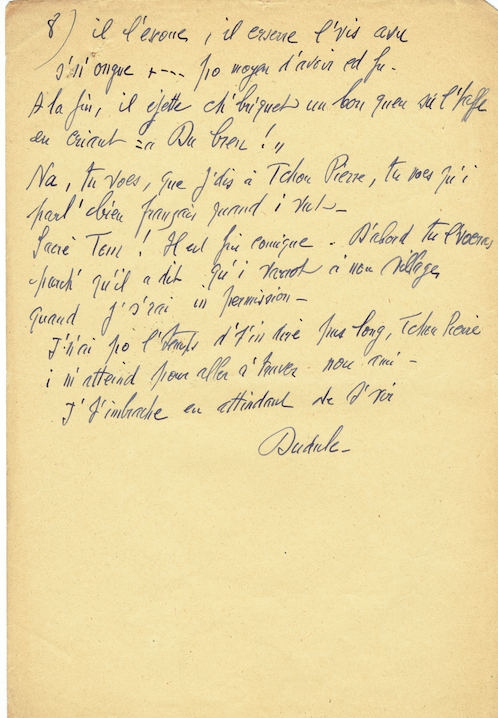 8) il l'escoue, il erserre l'vis avu
s'n'ongue + --- po moyen d'avoir ed fu.
A la fin, il ejette ch'briquet un bon queu su l'
en criant = « Du bren ! »
Na, tu voes, que j'dis à Tchou Pierre, tu voes qu'i
parl' ebien français quand i veut -
Sacré Tom ! Il est fin comique. D'abord tu l'voeras
parch' qu'il a dit qu'i varrot à nou village,
quand j's'rai in permission -
J'n'ai po l'temps d't'in dire pus long, Tchou Pierre
i m'atteind pour aller à 't'traver nou ami -
J't'imbrache en attindant de t'vir
Dudule -